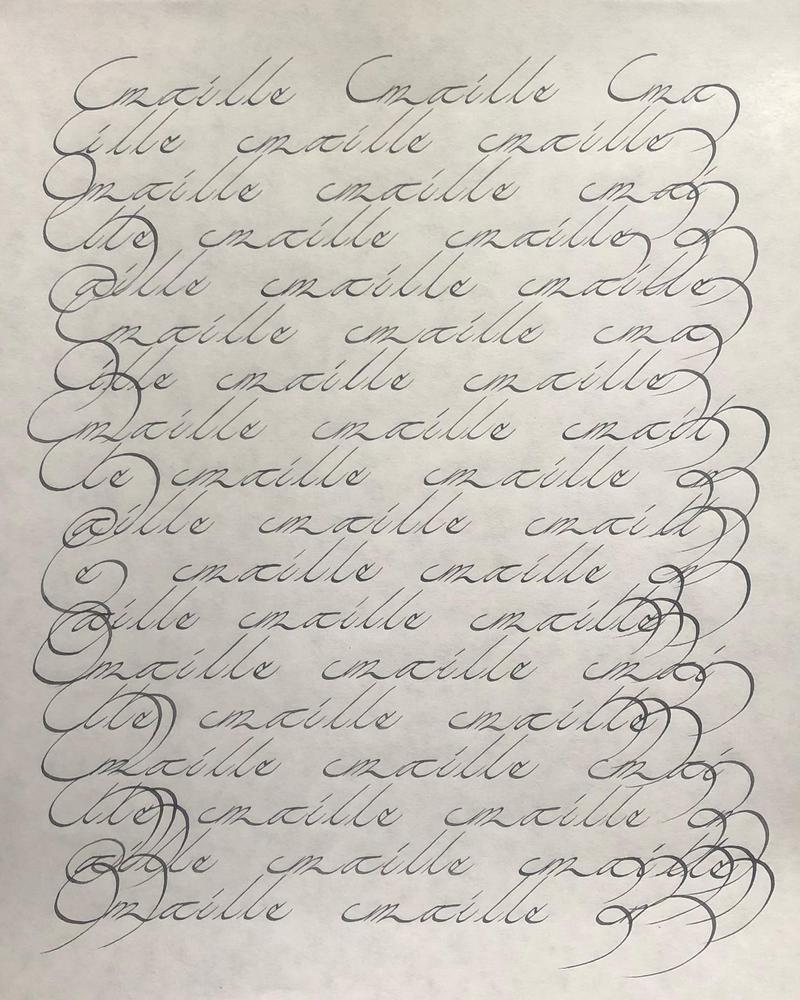 Cmaille Cmaille Cma
ille cmaille cmaille
Cmaille cmaille cmai
lle cmaille cmaille cm
aille cmaille cmaille
Cmaille cmaille cma
ille cmaille cmaille
Cmaille cmaille cmail
le cmaille cmaille cm
aille cmaille cmaill
e cmaille cmaille cm
aille cmaille cmaille
Cmaille cmaille cmai
lle cmaille cmaille
Cmaille cmaille cmai
lle cmaille cmaille cm
aille cmaille cmaille
Cmaille cmaille cm